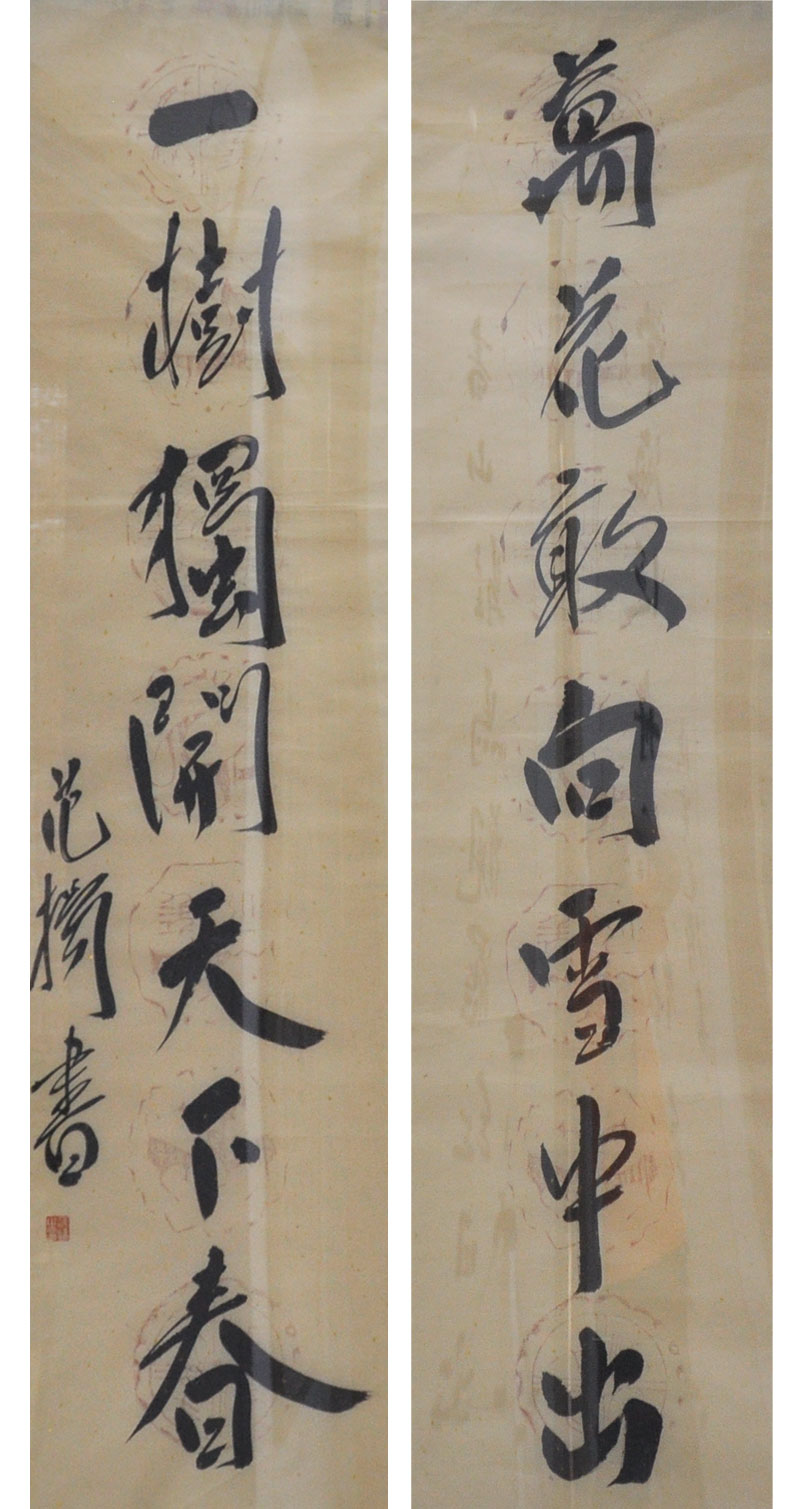 萬花敢向雪中出
一樹獨開天下春
范 書